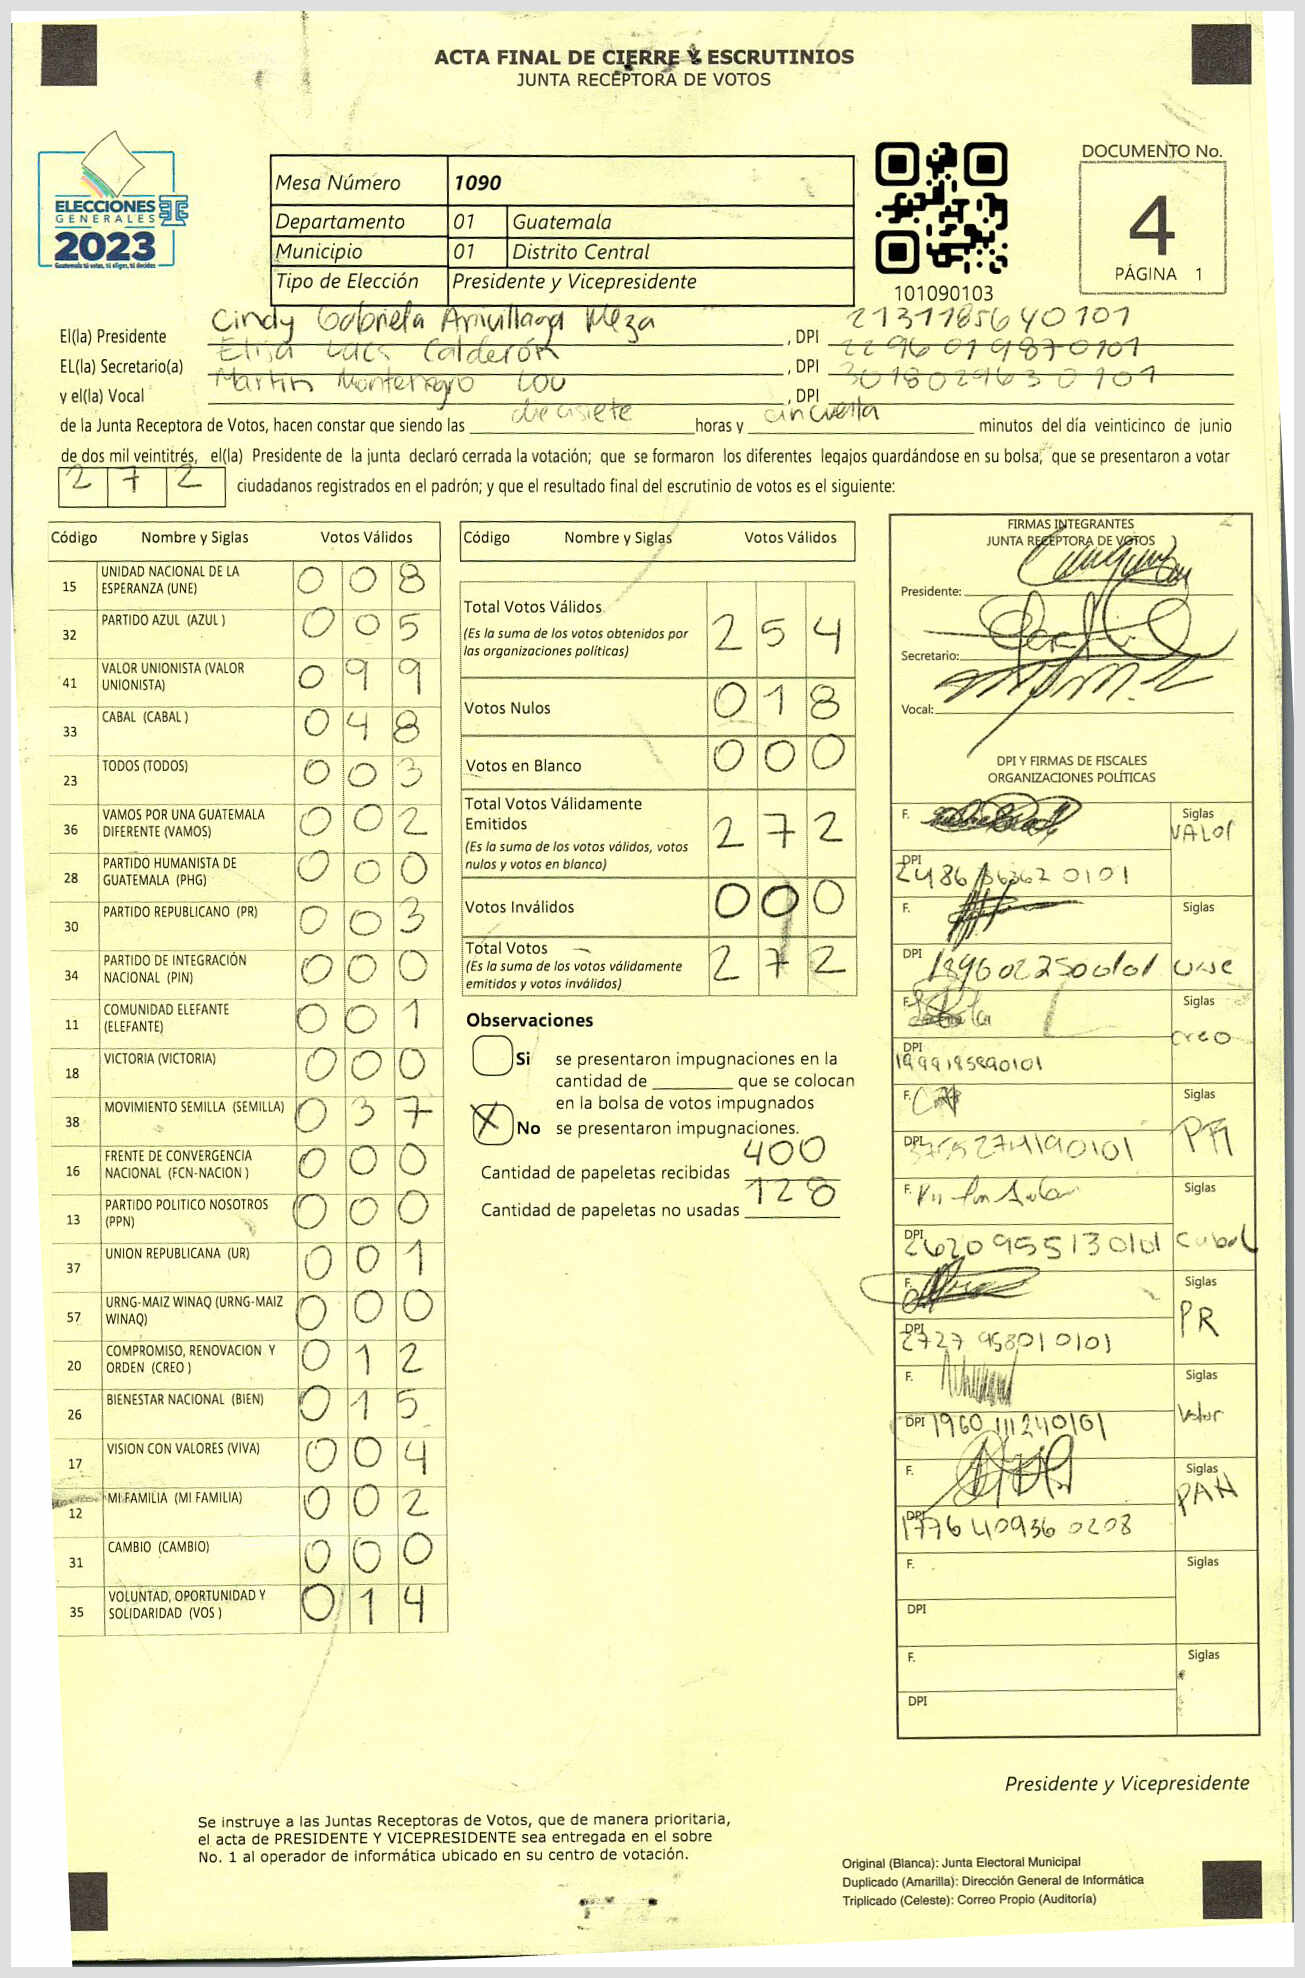 ACTA FINAL DE CIERRE Y ESCRUTINIOS
JUNTA RECEPTORA DE VOTOS
ELECCIONES
GENERALES
2023
Guatemala tú votas, tú eliges, tú decides
Mesa Número 1090
Departamento 01 Guatemala
Municipio 01 Distrito Central
Tipo de Elección Presidente y Vicepresidente
101090103
DOCUMENTO No.
4
PÁGINA 1
El(la) Presidente Cindy Gabriela Arrivillaga Meza, DPI 2131185640101
EL(la) Secretario(a) Elisa Calderón, DPI 2296019870101
y el(la) Vocal Martin Montenegro, DPI 3018029630101
de la Junta Receptora de Votos, hacen constar que siendo las diecisiete horas y cincuenta minutos del día veinticinco de junio
de dos mil veintitrés, el(la) Presidente de la junta declaró cerrada la votación; que se formaron los diferentes legajos guardándose en su bolsa, que se presentaron a votar
272 ciudadanos registrados en el padrón; y que el resultado final del escrutinio de votos es el siguiente:
Código Nombre y Siglas Votos Válidos
15 UNIDAD NACIONAL DE LA ESPERANZA (UNE) 008
32 PARTIDO AZUL (AZUL ) 005
41 VALOR UNIONISTA (VALOR UNIONISTA) 099
33 CABAL (CABAL ) 048
23 TODOS (TODOS) 003
36 VAMOS POR UNA GUATEMALA DIFERENTE (VAMOS) 002
28 PARTIDO HUMANISTA DE GUATEMALA (PHG) 000
30 PARTIDO REPUBLICANO (PR) 003
34 PARTIDO DE INTEGRACIÓN NACIONAL (PIN) 000
11 COMUNIDAD ELEFANTE (ELEFANTE) 001
18 VICTORIA (VICTORIA) 000
38 MOVIMIENTO SEMILLA (SEMILLA) 037
16 FRENTE DE CONVERGENCIA NACIONAL (FCN-NACION ) 000
13 PARTIDO POLITICO NOSOTROS (PPN) 000
37 UNION REPUBLICANA (UR) 001
57 URNG-MAIZ WINAQ (URNG-MAIZ WINAQ) 000
20 COMPROMISO, RENOVACION Y ORDEN (CREO ) 012
26 BIENESTAR NACIONAL (BIEN) 015
17 VISION CON VALORES (VIVA) 004
12 MI FAMILIA (MI FAMILIA) 002
31 CAMBIO (CAMBIO) 000
35 VOLUNTAD, OPORTUNIDAD Y SOLIDARIDAD (VOS ) 014
Código Nombre y Siglas Votos Válidos
Total Votos Válidos 254
(Es la suma de los votos obtenidos por
las organizaciones políticas)
Votos Nulos 018
Votos en Blanco 000
Total Votos Válidamente
Emitidos 272
(Es la suma de los votos válidos, votos
nulos y votos en blanco)
Votos Inválidos 000
Total Votos 272
(Es la suma de los votos válidamente
emitidos y votos inválidos)
Observaciones
Si se presentaron impugnaciones en la
cantidad de ________ que se colocan
en la bolsa de votos impugnados
X No se presentaron impugnaciones.
Cantidad de papeletas recibidas 400
Cantidad de papeletas no usadas 128
FIRMAS INTEGRANTES
JUNTA RECEPTORA DE VOTOS
Presidente:
Secretario:
Vocal:
DPI Y FIRMAS DE FISCALES
ORGANIZACIONES POLÍTICAS
F. Siglas VALOR
DPI
F. Siglas UNE
DPI
F. Siglas creo
DPI 1999185890101
F. Siglas
DPI
F. Siglas Cabal
DPI 2620955130101
F. Siglas PR
DPI 2727958010101
F. Siglas Valor
DPI 1960111240101
F. Siglas
DPI 1776409360208
F. Siglas
DPI
F. Siglas
DPI
Presidente y Vicepresidente
Se instruye a las Juntas Receptoras de Votos, que de manera prioritaria,
el acta de PRESIDENTE Y VICEPRESIDENTE sea entregada en el sobre
No. 1 al operador de informática ubicado en su centro de votación.
Original (Blanca): Junta Electoral Municipal
Duplicado (Amarilla): Dirección General de Informática
Triplicado (Celeste): Correo Propio (Auditoría)